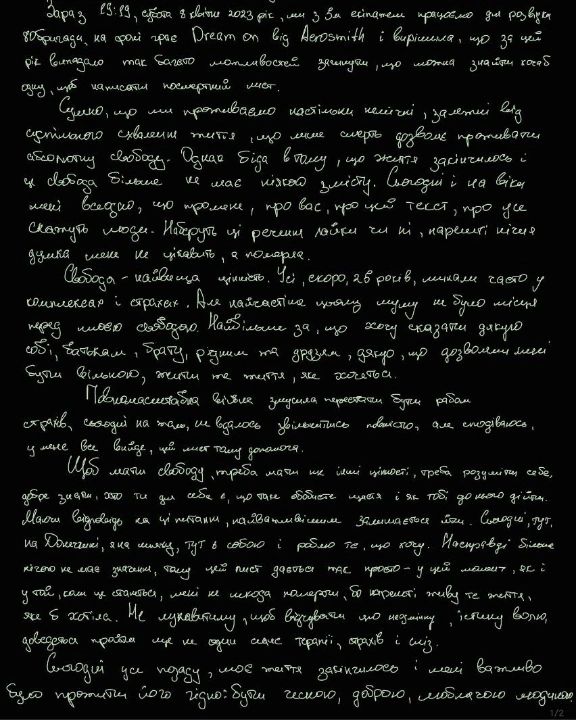 Зараз 19:19, субота 8 квітня 2023 рік, ми з 3м екіпажем працюємо для розвідки
80бригади, на фоні грає Dream on від Aerosmith і вирішила, що за цей
рік випадало так багато можливостей загинути, що можна знайти хоча б
одну, щоб написати посмертний лист.
Сумно, що ми проживаємо настільки нелегкі, залежні від
суспільного схвалення життя, що лише смерть дозволяє проживати
абсолютну свободу. Однак біда в тому, що життя закінчилось і
ця свобода більше не має ніякого змісту. Сьогодні і на віки
мені всеодно, що про мене, про вас, про цей текст, про усе
скажуть люди. Наберуть ці речення лайки чи ні, нарешті нічия
думка мене не цікавить, я померла.
Свобода - найвища цінність. Усі, скоро, 25 років, минали часто у
комплексах і страхах. Але найчастіше цьому шуму не було місця
перед моєю свободою. Найбільше за, що хочу сказати дякую
собі, батькам, брату, рідним та друзям, дякую, що дозволяли мені
бути вільною, жити те життя, яке хочеться.
Повномасштабна війна змусила перестати бути рабом
страхів, сьогодні на жаль, не вдалось звільнитись повністю, але сподіваюсь,
у мене все вийде, цей лист тому допомога.
Щоб мати свободу, треба мати ще інші цінності, треба розуміти себе,
добре знати, хто ти для себе є, що таке особисте щастя і як тобі до нього дійти.
Маючи відповідь на ці питання, найважливішим залишається йти. Сьогодні тут,
на Донеччині, я на шляху, тут я собою і роблю те, що хочу. Насправді більше
нічого не має значення, тому цей лист дається так просто - у цей момент, як і
у той, коли це станеться, мені не шкода померти, бо нарешті живу те життя,
яке б хотіла. Не лукавитиму, щоб відчувати цю незмінну, істину волю,
довелося пройти ще не один сеанс терапії, страхів і сліз.
Сьогодні усе позаду, моє життя закінчилось і мені важливо
було прожити його гідно: бути чесною, доброю, люблячою людиною.
1/2